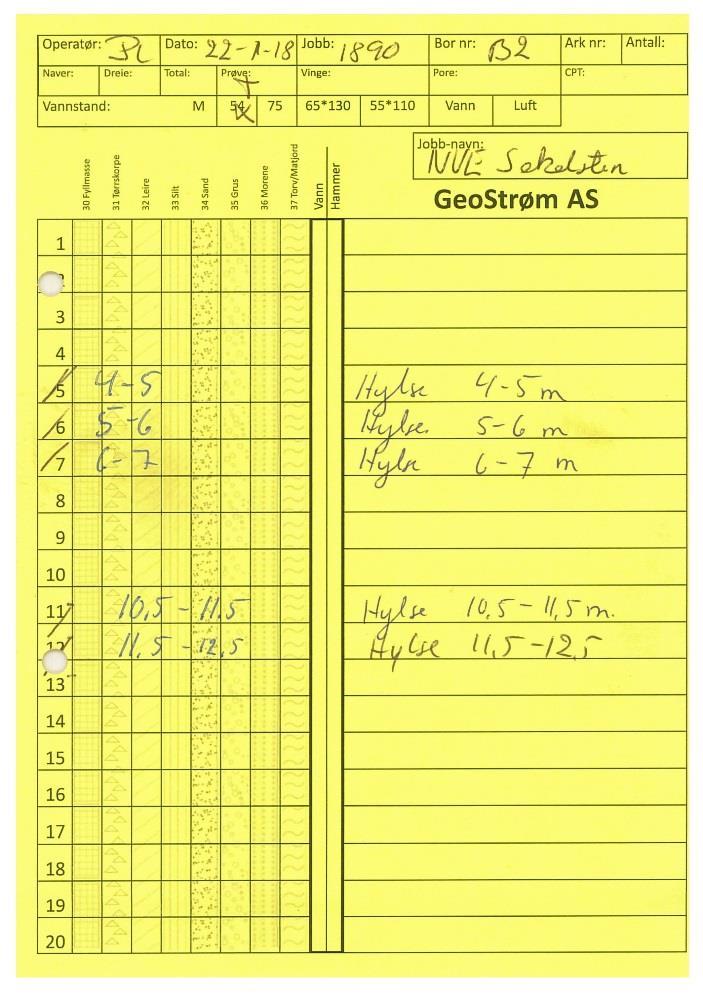 Operatør: Dato: 22-1-18 Jobb: 1890 Bor nr: B2 Ark nr: Antall:
Naver: Dreie: Total: Prøve: + Vinge: Pore: CPT:
Vannstand: M 54 x 75 65*130 55*110 Vann Luft
Jobb-navn:
NVE
GeoStrøm AS
30 Fyllmasse 31 Tørrskorpe 32 Leire 33 Silt 34 Sand 35 Grus 36 Morene 37 Torv/Matjord Vann Hammer
1
3
4
5 4-5 Hylse 4-5 m
6 5-6 Hylse. 5-6 m
7 6-7 Hylse 6-7 m
8
9
10
11 10,5 - 11,5 Hylse 10,5 - 11,5 m.
12 11,5 - 12,5 Hylse 11,5 - 12,5
13
14
15
16
17
18
19
20